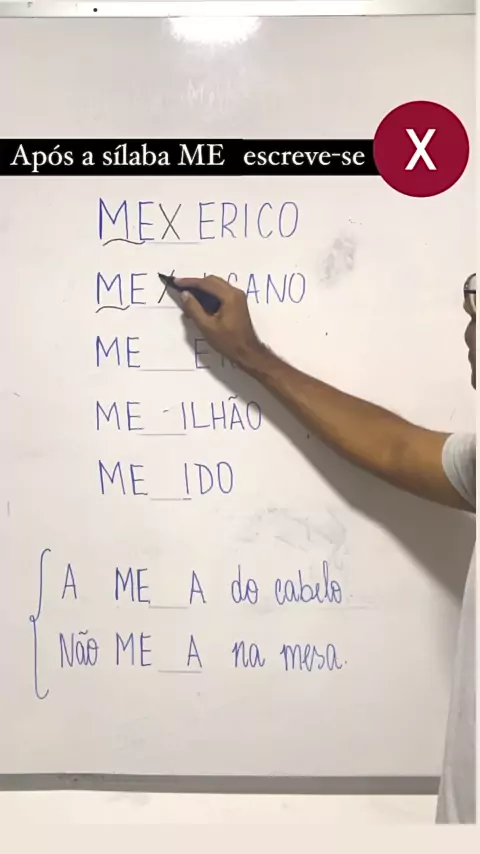 Após a sílaba ME escreve-se X
MEX ERICO
MEX ICANO
ME__ E
ME__ILHÃO
ME__IDO
A ME__A do cabelo.
Não ME__A na mesa.